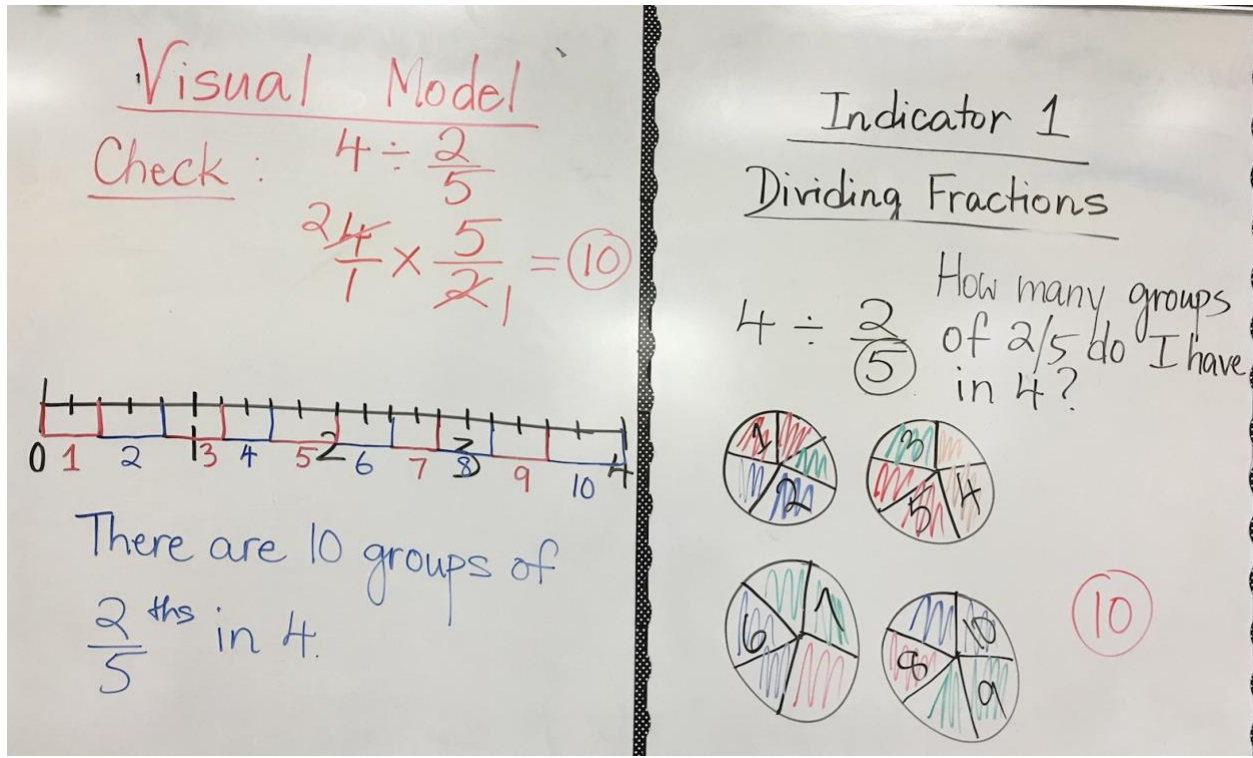 Visual Model
Check: 4 ÷ 2/5
2 4/1 × 5/2 1 = 10
0 1 2 1 3 4 5 2 6 7 3 8 9 10 4
There are 10 groups of
2/5 ths in 4.
Indicator 1
Dividing Fractions
4 ÷ 2/5
How many groups
of 2/5 do I have
in 4?
1 2
3 4 5
6 7
8 9 10
10